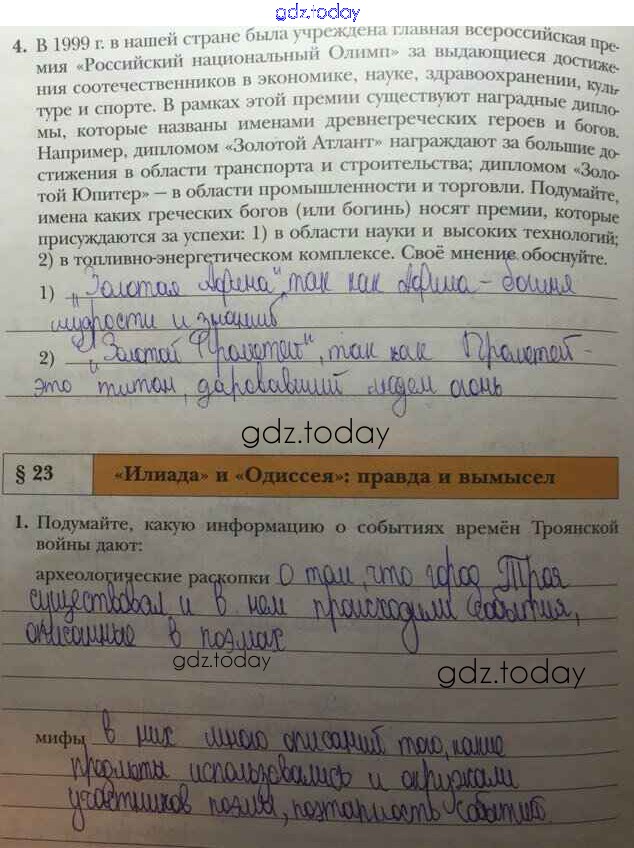 gdz.today
4. В 1999 г. в нашей стране была учреждена главная всероссийская пре-
мия «Российский национальный Олимп» за выдающиеся достиже-
ния соотечественников в экономике, науке, здравоохранении, куль-
туре и спорте. В рамках этой премии существуют наградные дипло-
мы, которые названы именами древнегреческих героев и богов.
Например, дипломом «Золотой Атлант» награждают за большие до-
стижения в области транспорта и строительства; дипломом «Золо-
той Юпитер» — в области промышленности и торговли. Подумайте,
имена каких греческих богов (или богинь) носят премии, которые
присуждаются за успехи: 1) в области науки и высоких технологий;
2) в топливно-энергетическом комплексе. Своё мнение обоснуйте.
1) „Золотая Афина", так как Афина - богиня
мудрости и знаний
2) „Золотой Прометей", так как Прометей -
это титан, даровавший людям огонь
gdz.today
§ 23 «Илиада» и «Одиссея»: правда и вымысел
1. Подумайте, какую информацию о событиях времён Троянской
войны дают:
археологические раскопки о том, что город Троя
существовал и в нем происходили события,
описанные в поэмах
gdz.today
gdz.today
мифы в них много описаний того, какие
предметы использовались и окружали
участников поэмы, поэтапность событий